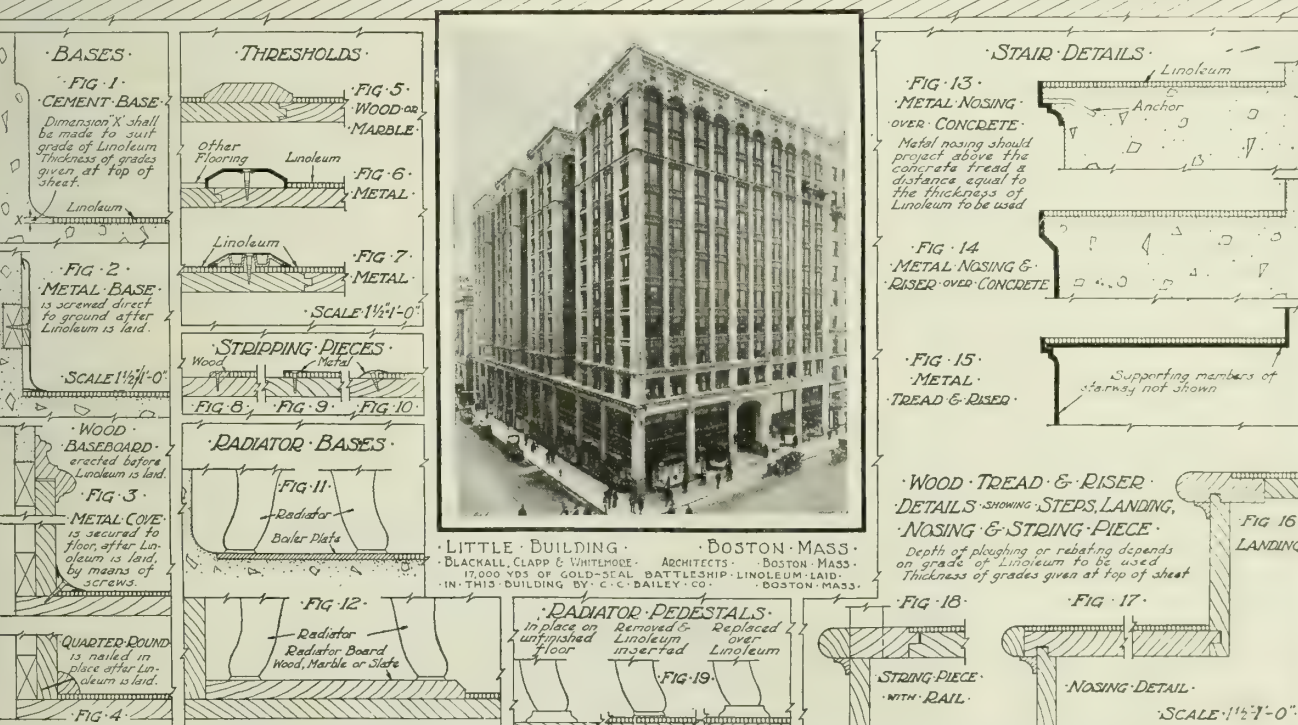 ·BASES·
·FIG·1·
·CEMENT·BASE·
Dimension "X" shall
be made to suit
grade of Linoleum
Thickness of grades
given at top of
sheet.
Linoleum
X
·FIG·2·
METAL·BASE·
is screwed direct
to ground after
Linoleum is laid.
·SCALE 1½"1'-0"
·WOOD·
BASEBOARD·
erected before
Linoleum is laid.
·FIG·3·
·METAL·COVE·
is secured to
floor, after Lin-
oleum is laid,
by means of
screws.
QUARTER·ROUND
is nailed in
place after Lin-
oleum is laid.
·FIG·4·
·THRESHOLDS·
·FIG·5·
WOOD·OR
MARBLE·
Other
Flooring
Linoleum
·FIG·6·
METAL·
Linoleum
·FIG·7·
METAL·
·SCALE·1½"1'-0"
·STRIPPING·PIECES·
Wood
Metal
·FIG·8·
·FIG·9·
·FIG·10·
·RADIATOR·BASES·
·FIG·11·
Radiator
Boiler Plate
·FIG·12·
Radiator
Radiator Board
Wood, Marble or Slate
·LITTLE·BUILDING· ·BOSTON·MASS·
·BLACKALL, CLAPP & WHITEMORE· ARCHITECTS· ·BOSTON·MASS·
17,000 YDS OF GOLD-SEAL BATTLESHIP·LINOLEUM·LAID·
·IN·THIS·BUILDING·BY·C·C·BAILEY·CO· ·BOSTON·MASS·
·RADIATOR·PEDESTALS·
In place on
unfinished
floor
Removed &
Linoleum
inserted
Replaced
over
Linoleum
·FIG·19·
·STAIR·DETAILS·
·FIG·13·
·METAL·NOSING·
·OVER·CONCRETE·
Metal nosing should
project above the
concrete tread a
distance equal to
the thickness of
Linoleum to be used
Linoleum
Anchor
·FIG·14·
·METAL·NOSING·&
·RISER·OVER·CONCRETE
·FIG·15·
·METAL·
TREAD·&·RISER·
Supporting members of
stairway not shown
·WOOD·TREAD·&·RISER·
DETAILS·SHOWING·STEPS, LANDING,
·NOSING·&·STRING·PIECE·
Depth of ploughing or rebating depends
on grade of Linoleum to be used
Thickness of grades given at top of sheet
·FIG·16
LANDING
·FIG·18·
·FIG·17·
·STRING·PIECE·
·WITH·RAIL·
·NOSING·DETAIL·
·SCALE·1½"1'-0"·